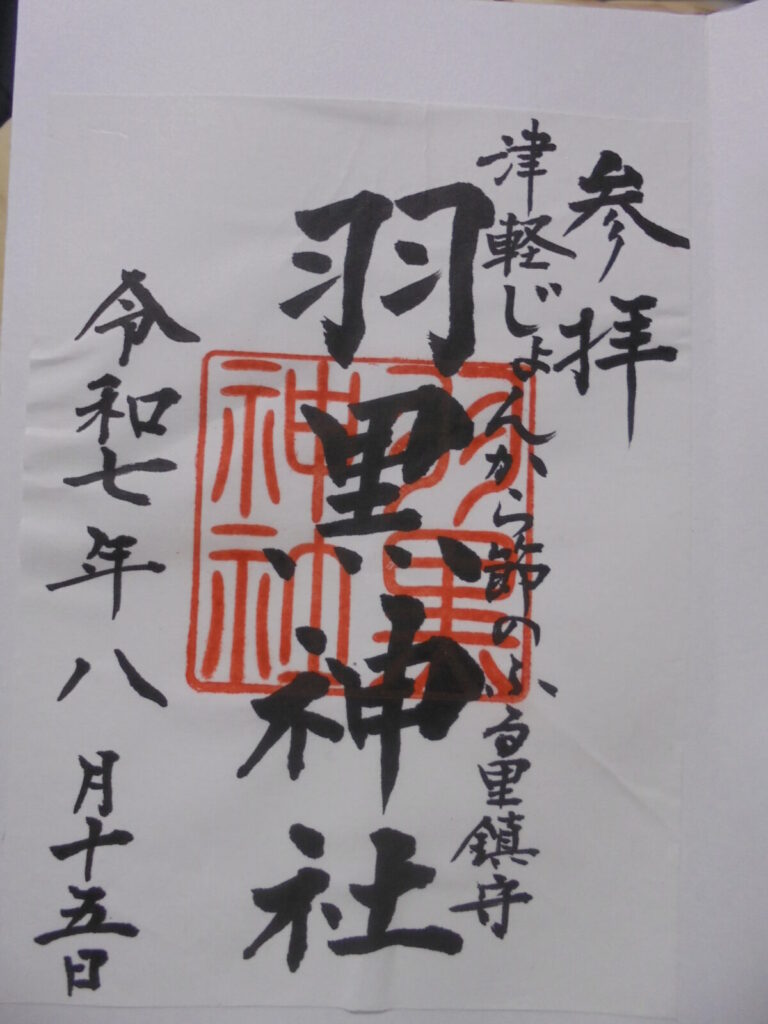 参拝
津軽じょんから節のふる里鎮守
羽黒神社
羽黒
神社
令和七年八月十五日